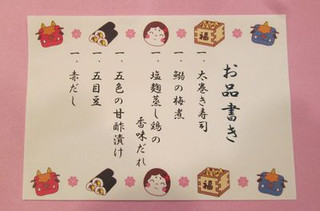 お品書き
一．太巻き寿司
一．鰯の梅煮
一．塩麹蒸し鶏の
香味だれ
一．五色の甘酢漬け
一．五目豆
一．赤だし
福
福